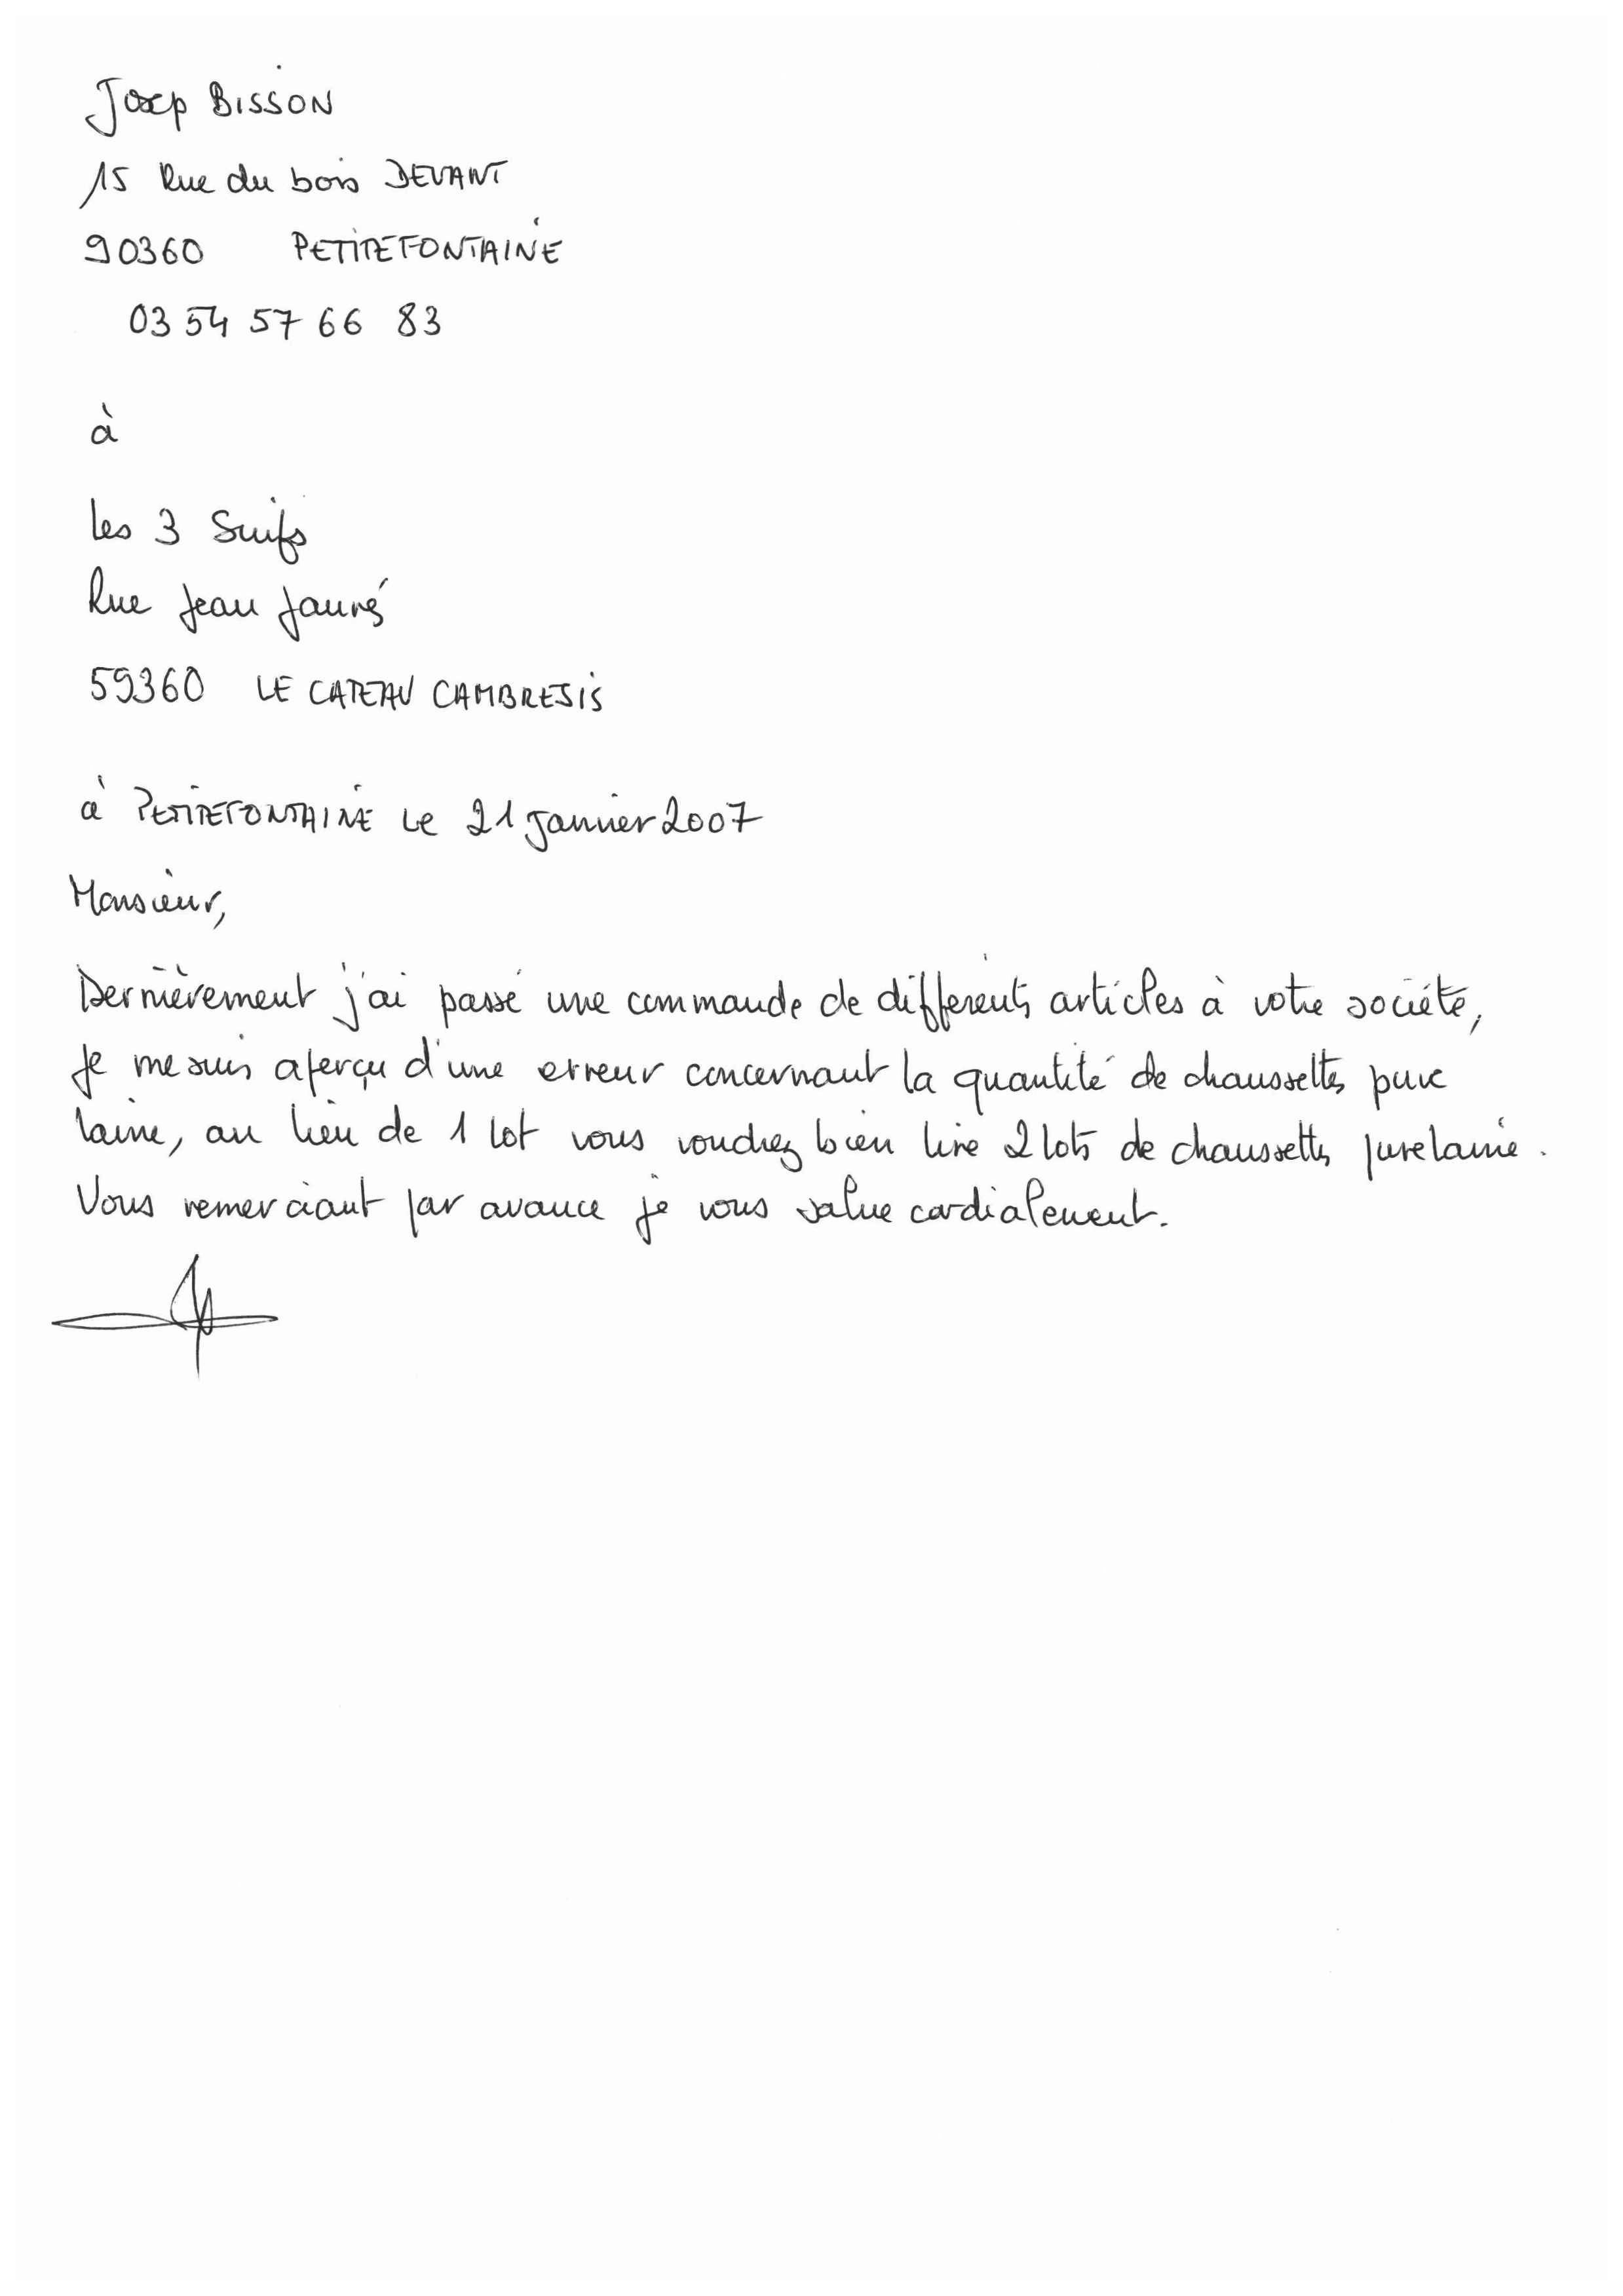 Josep BISSON
15 Rue du bois DEVANT
90360 PETITEFONTAINE
03 54 57 66 83
à
les 3 Suifs
Rue Jean Jaurés
59360 LE CATEAU CAMBRESIS
à PETITEFONTAINE Le 21 janvier 2007
Monsieur,
Dernièrement j'ai passé une commande de différents articles à votre société,
Je me suis aperçu d'une erreur concernant la quantité de chaussettes pure
laine, au lieu de 1 lot vous voudrez bien lire 2 lots de chaussettes pure laine.
Vous remerciant par avance je vous salue cordialement.